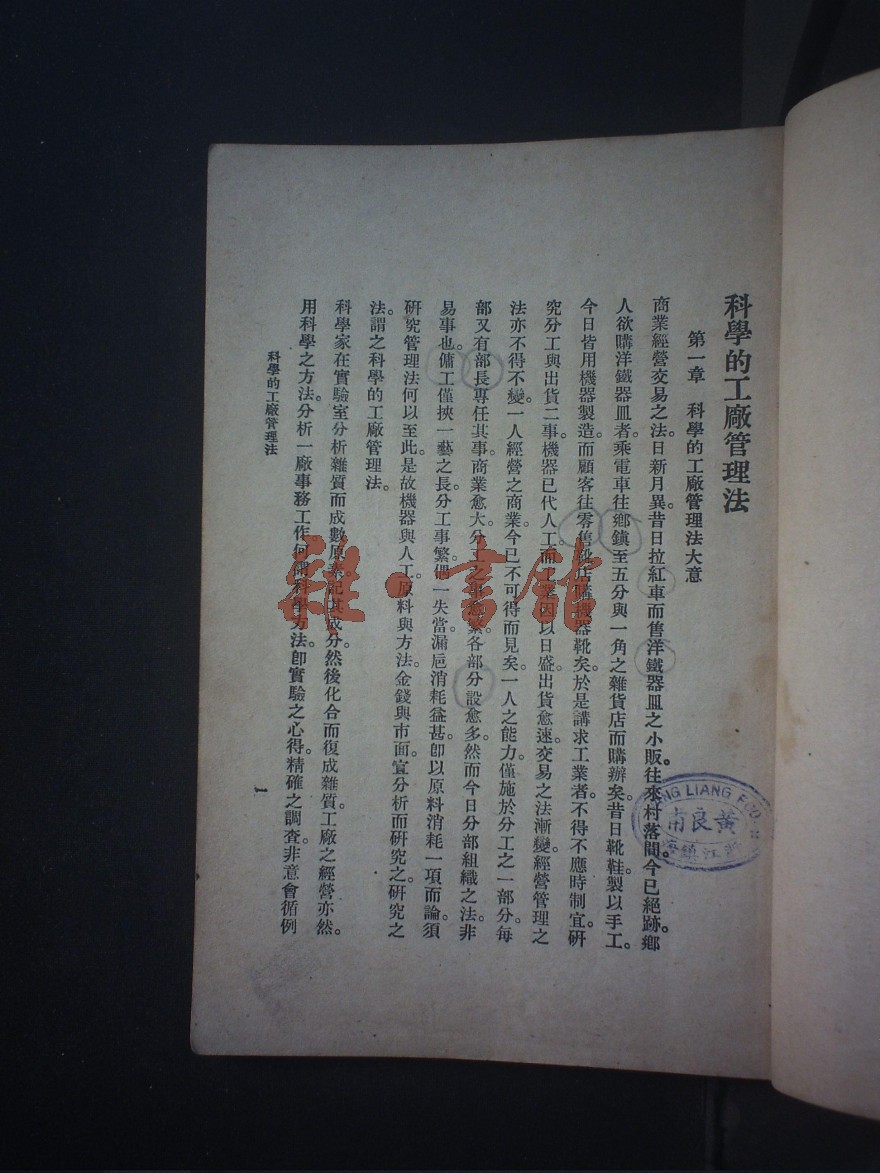 科學的工廠管理法
第一章　科學的工廠管理法大意
商業經營交易之法。日新月異。昔日拉紅車而售洋鐵器皿之小販。往來村落間。今已絕跡。鄉
人欲購洋鐵器皿者。乘電車往鄉鎮至五分與一角之雜貨店而購辦矣。昔日靴鞋製以手工。
今日皆用機器製造。而顧客往零售靴店購機器靴矣。於是講求工業者。不得不應時制宜。研
究分工與出貨二事。機器已代人工。而工業因以日盛。出貨愈速。交易之法漸變。經營管理之
法亦不得不變。一人經營之商業。今已不可得而見矣。一人之能力。僅施於分工之一部分。每
部又有部長專任其事。商業愈大。分工之事愈繁。各部分設愈多。然而今日分部組織之法。非
易事也。傭工僅挾一藝之長。分工事繁。偶一失當。漏巵消耗益甚。卽以原料消耗一項而論。須
研究管理法何以至此。是故機器與人工。原料與方法。金錢與市面。宜分析而研究之。研究之
法。謂之科學的工廠管理法。
科學家在實驗室分析雜質而成數原素。記其成分。然後化合而復成雜質。工廠之經營亦然。
用科學之方法。分析一廠事務工作。何謂科學方法。卽實驗之心得。精確之調查。非意會循例
科學的工廠管理法
一
LIANG FOO
黃良甫
雜·書館